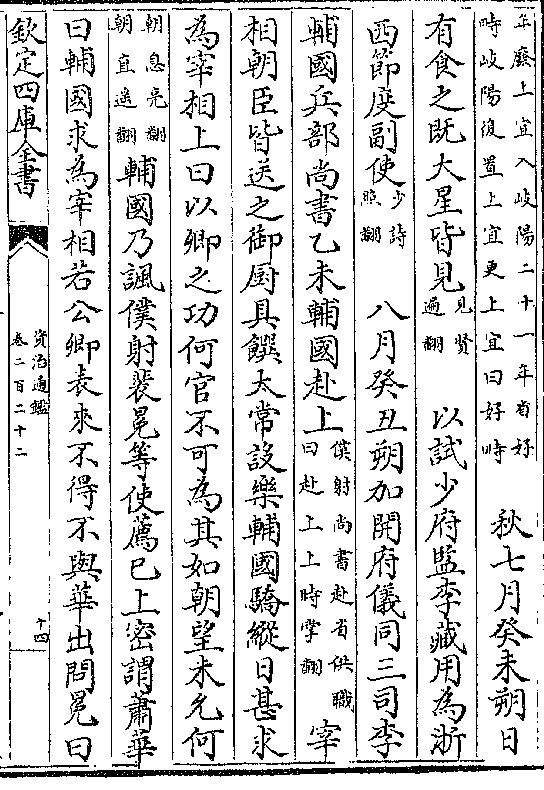 年廢上宜入岐陽二十一年省好
時岐陽復置上宜更上宜曰好畤
秋七月癸未朔日
有食之既大星皆見
見賢
遍翻
以試少府監李藏用為浙
西節度副使
少詩
照翻
八月癸丑朔加開府儀同三司李
輔國兵部尚書乙未輔國赴上
僕射尚書赴省供職
曰赴上上時掌翻
宰
相朝臣皆送之御厨具饌太常設樂輔國驕縱日甚求
為宰相上曰以卿之功何官不可為其如朝望未允何
朝息亮翻
朝直遥翻
輔國乃諷僕射裴冕等使薦已上密謂蕭華
曰輔國求為宰相若公卿表來不得不與華出問冕曰
欽定四庫全書
資治通鑑
卷二百二十二
十四